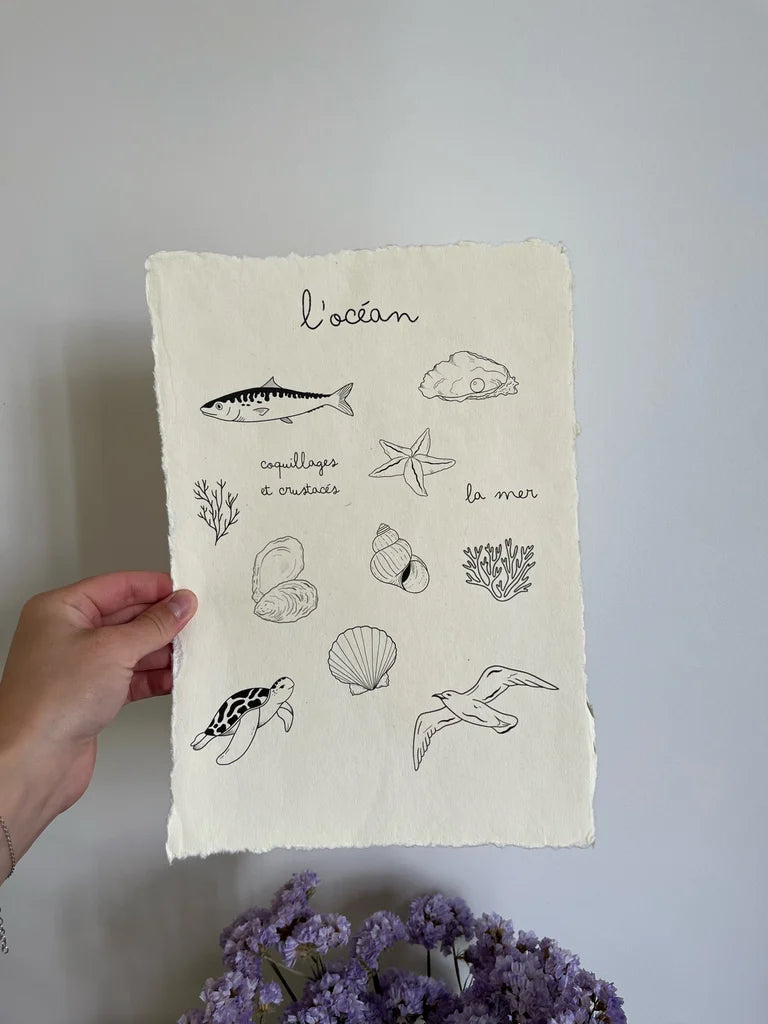 l'océan
coquillages
et crustacés
la mer